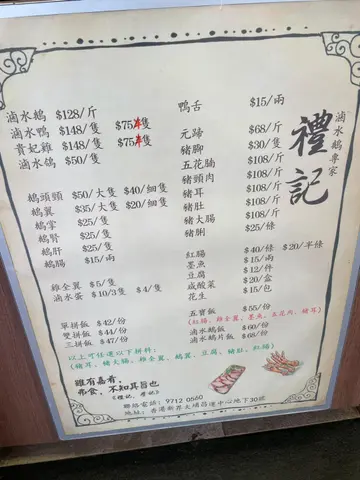 滷水鵝專家
禮記
滷水鵝 $128/斤
滷水鴨 $148/隻 $75/隻
貴妃雞 $148/隻 $75/隻
滷水鴿 $50/隻
鵝頭頸 $50/大隻 $40/細隻
鵝翼 $35/大隻 $20/細隻
鵝掌 $25/隻
鵝腎 $25/隻
鵝肝 $25/隻
鵝腸 $15/兩
雞全翼 $5/隻
滷水蛋 $10/3隻 $4/隻
單拼飯 $42/份
雙拼飯 $44/份
三拼飯 $47/份
鴨舌 $15/兩
元蹄 $68/斤
豬腳 $30/隻
五花腩 $108/斤
豬頭肉 $108/斤
豬耳 $108/斤
豬肚 $108/斤
豬大腸 $108/斤
豬脷 $25/條
紅腸 $40/條 $20/半條
墨魚 $15/兩
豆腐 $12/件
咸酸菜 $20/包
花生 $15/包
五寶飯 $55/份
(紅腸、雞全翼、墨魚、五花肉、豬耳)
滷水鵝飯 $60/份
滷水鵝片飯 $68/份
以上可任選以下拼料:
(豬耳、豬大腸、雞全翼、鵝翼、豆腐、豬肚、紅腸)
雖有嘉肴,
弗食,不知其旨也
《禮記.學記》
聯絡電話: 9712 0560
地址: 香港新界大埔昌運中心地下30號